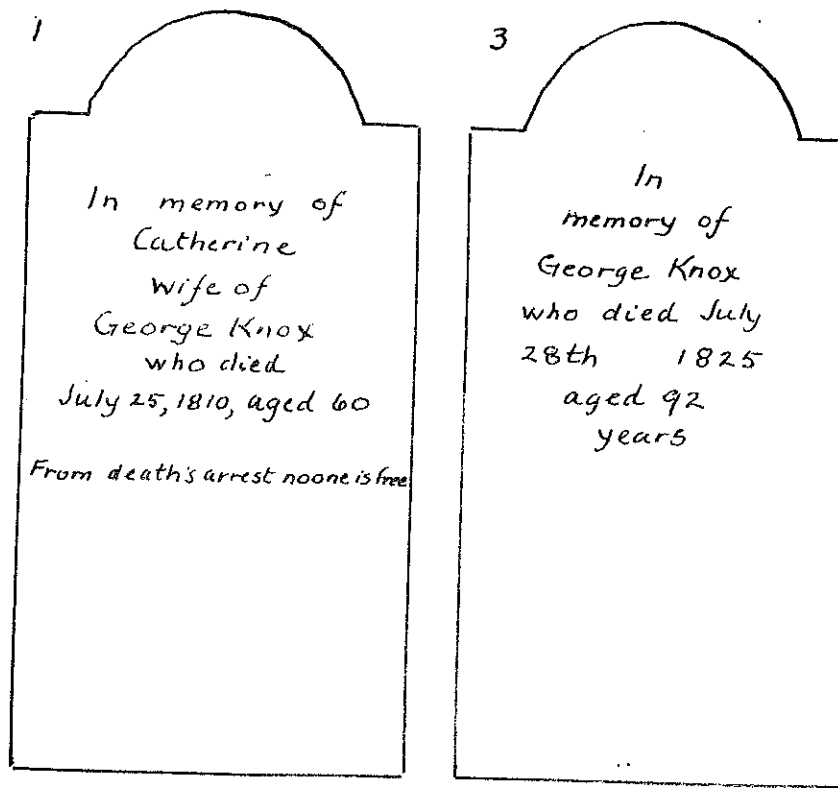 1
In memory of
Catherine
Wife of
George Knox
who died
July 25, 1810, aged 60
From death's arrest noone is free
3
In
memory of
George Knox
who died July
28th 1825
aged 92
years